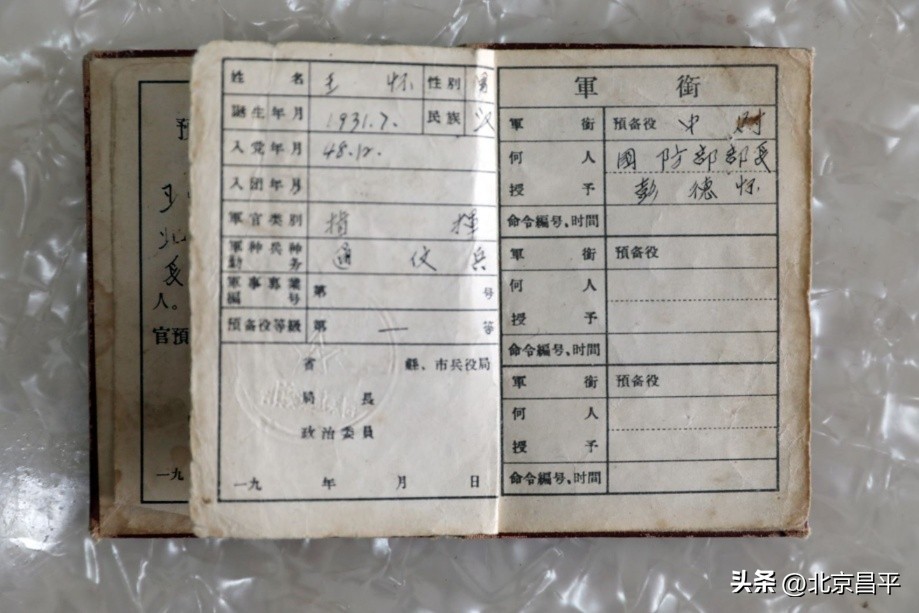 姓名 王 怀 性别 男
誕生年月 1931.7. 民族 汉
入党年月 48.12.
入团年月
軍官类别 指 揮
軍种兵种勤务 通 仪 兵
軍事專業編号 第 号
預备役等級 第 一 等
省 縣、市兵役局
局 長
政治委員
一九 年 月 日
軍 銜
軍銜 預备役 中
何人 國防部部長
授予 彭德怀
命令編号、时間
軍銜 預备役
何人
授予
命令編号、时間
軍銜 預备役
何人
授予
命令編号、时間
預
人。
官預
一九
头条 @北京昌平